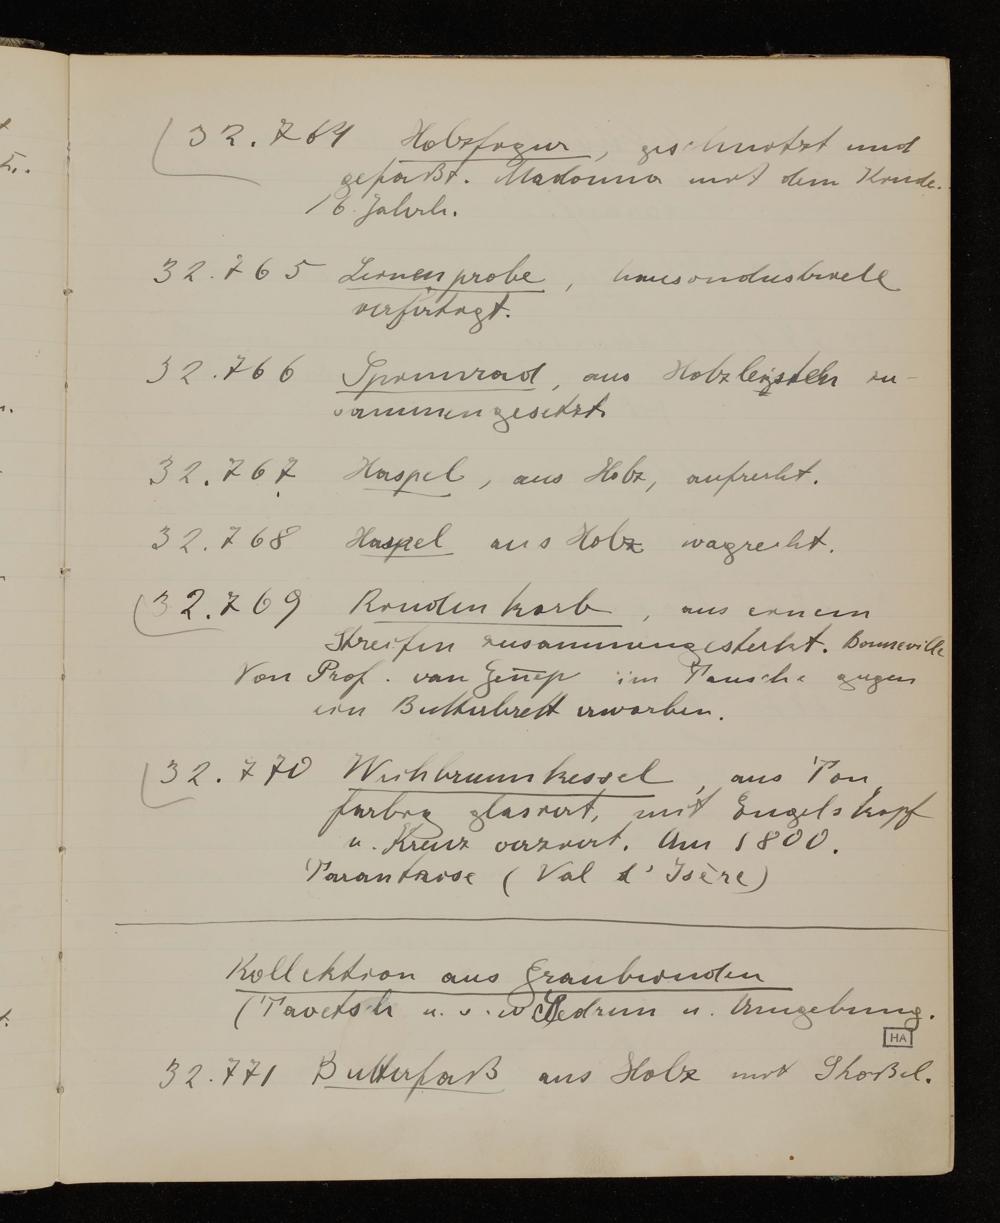 32.764 Holzfigur, geschnitzt und
gefaßt. Madonna mit dem Kinde.
16. Jahrh.
32.765 Leinenprobe, hausindustriell
verfertigt.
32.766 Spinnrad, aus Holzleisteln zu-
sammengesetzt.
32.767 Haspel, aus Holz, aufrecht.
32.768 Haspel aus Holz wagrecht.
32.769 Rindenkorb, aus einem
Streifen zusammengesteckt. Bonneville
Von Prof. van Genep im Tausche gegen
ein Butterbrett erworben.
32.770 Weihbrunnkessel, aus Ton,
farbig glasiert, mit Engelskopf
u. Kreuz verziert. Um 1800.
Tarantaise (Val d'Isère)
Kollektion aus Graubünden
(Tavetsch u. s. w Sedrun u. Umgebung.
HA
32.771 Butterfaß aus Holz mit Stößel.